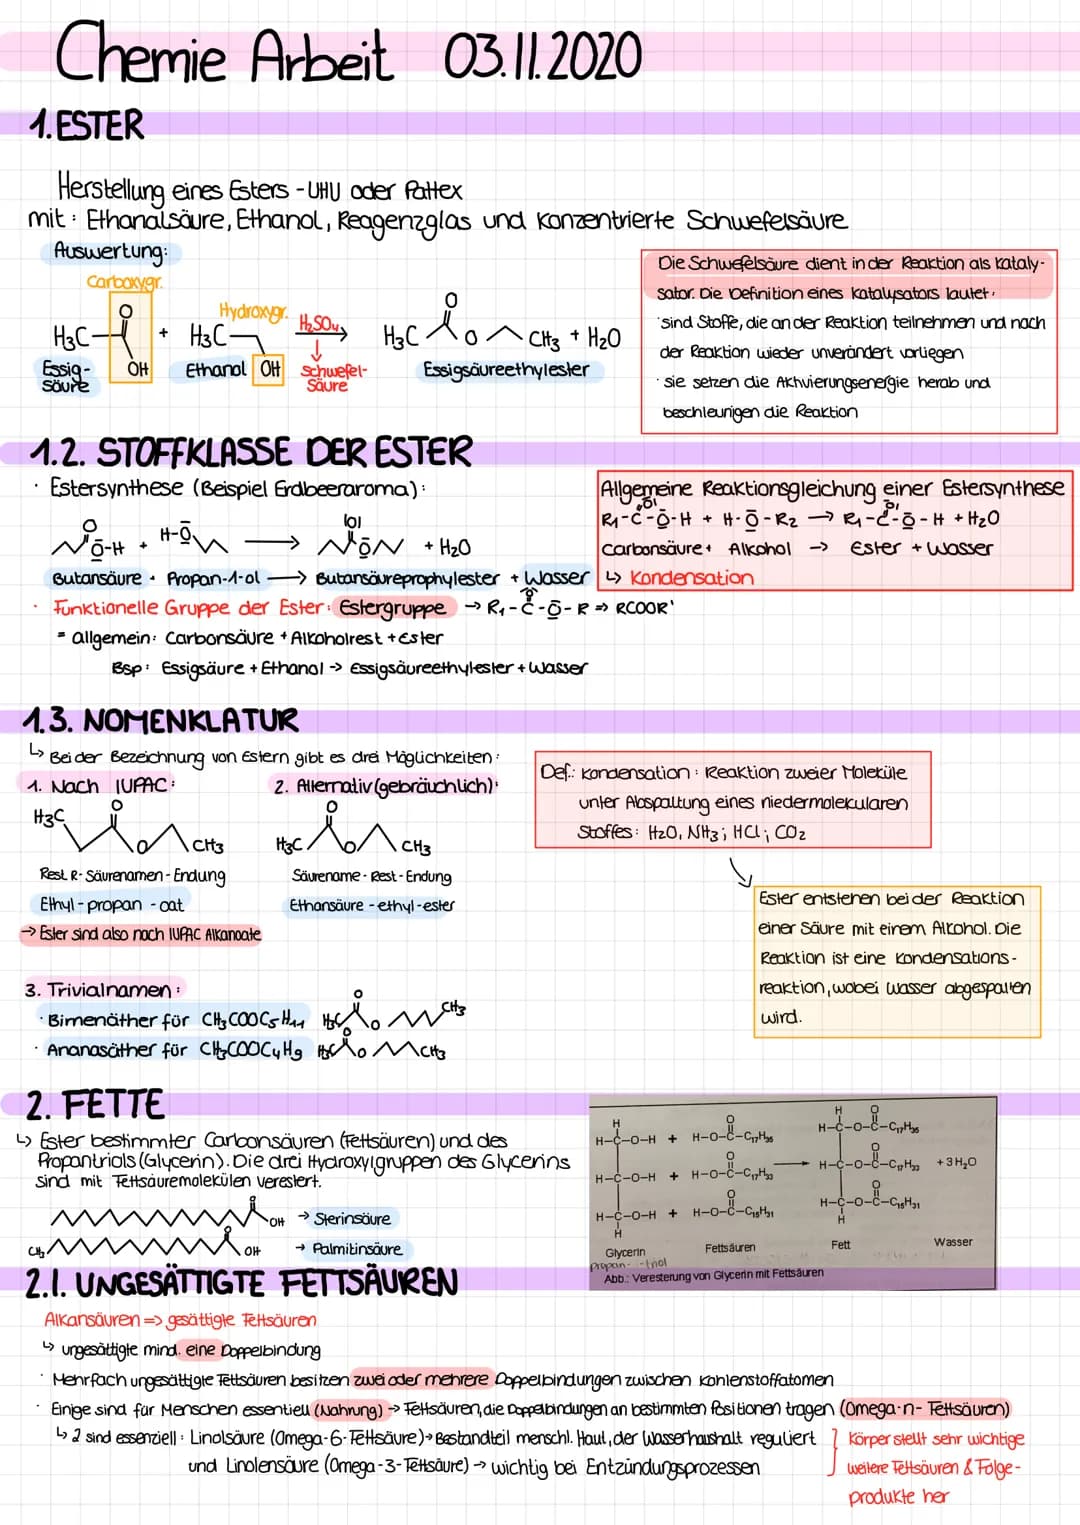 Chemie Arbeit 03.11.2020
1. ESTER
Herstellung eines Esters - UHU oder Pattex
mit: Ethanalsäure, Ethanol, Reagenzglas und konzentrierte Schwefelsäure
Auswertung:
Carboxygr.
O
H₃C
OH
+
Hydroxygr.
H₃C
OH
H₂SO₄
O
H₃C
O
CH₃ + H₂O
Essig-
säure
Ethanol
Schwefel-
säure
Essigsäureethylester
Die Schwefelsäure dient in der Reaktion als Kataly-
sator. Die Definition eines Katalysators lautet:
· sind Stoffe, die an der Reaktion teilnehmen und nach
der Reaktion wieder unverändert vorliegen
· sie setzen die Aktivierungsenergie herab und
beschleunigen die Reaktion
1.2. STOFFKLASSE DER ESTER
· Estersynthese (Beispiel Erdbeeraroma):
O
O-H + H-O
→
|O|
O
+ H₂O
Butansäure + Propan-1-ol → Butansäureprophylester + Wasser
Allgemeine Reaktionsgleichung einer Estersynthese
R₁-C-O-H + H-O-R₂ → R₁-C-O-H + H₂O
Carbonsäure + Alkohol → Ester + Wasser
↳ Kondensation
· Funktionelle Gruppe der Ester: Estergruppe → R₁-C-O-R ⇒ RCOOR'
= allgemein: Carbonsäure + Alkoholrest + Ester
Bsp: Essigsäure + Ethanol → Essigsäureethylester + Wasser
1.3. NOMENKLATUR
↳ Bei der Bezeichnung von Estern gibt es drei Möglichkeiten:
1. Nach IUPAC:
H₃C
O
O
CH₃
Rest R - Säurenamen - Endung
Ethyl - propan - oat
→ Ester sind also nach IUPAC Alkanoate
2. Alternativ (gebräuchlich):
O
H₃C
O
CH₃
Säurename - Rest - Endung
Ethansäure - ethyl - ester
Def.: Kondensation: Reaktion zweier Moleküle
unter Abspaltung eines niedermolekularen
Stoffes: H₂O, NH₃; HCl; CO₂
Ester entstehen bei der Reaktion
einer Säure mit einem Alkohol. Die
Reaktion ist eine Kondensations-
reaktion, wobei Wasser abgespalten
wird.
3. Trivialnamen:
· Birnenäther für CH₃COOC₅H₁₁ H₃C O O CH₃
· Ananasäther für CH₃COOC₄H₉ H₃C O O CH₃
2. FETTE
↳ Ester bestimmter Carbonsäuren (Fettsäuren) und des
Propantriols (Glycerin). Die drei Hydroxylgruppen des Glycerins
sind mit Fettsäuremolekülen verestert.
O
OH → Sterinsäure
CH₃ O OH → Palmitinsäure
H O H O
H-C-O-H + H-O-C-C₁₇H₃₅ H-C-O-C-C₁₇H₃₅
O O
H-C-O-H + H-O-C-C₁₇H₃₃ → H-C-O-C-C₁₇H₃₃ + 3 H₂O
O O
H-C-O-H + H-O-C-C₁₅H₃₁ H-C-O-C-C₁₅H₃₁
H H
Glycerin Fettsäuren Fett Wasser
Propan- -triol
Abb.: Veresterung von Glycerin mit Fettsäuren
2.1. UNGESÄTTIGTE FETTSÄUREN
Alkansäuren => gesättigte Fettsäuren
↳ ungesättigte mind. eine Doppelbindung
· Mehrfach ungesättigte Fettsäuren besitzen zwei oder mehrere Doppelbindungen zwischen Kohlenstoffatomen
· Einige sind für Menschen essentiell (Nahrung) → Fettsäuren, die Doppelbindungen an bestimmten Positionen tragen (Omega-n-Fettsäuren)
↳ 2 sind essenziell: Linolsäure (Omega-6-Fettsäure) → Bestandteil menschl. Haut, der Wasserhaushalt reguliert
und Linolensäure (Omega-3-Fettsäure) → wichtig bei Entzündungsprozessen
Körper stellt sehr wichtige
weitere Fettsäuren & Folge-
produkte her